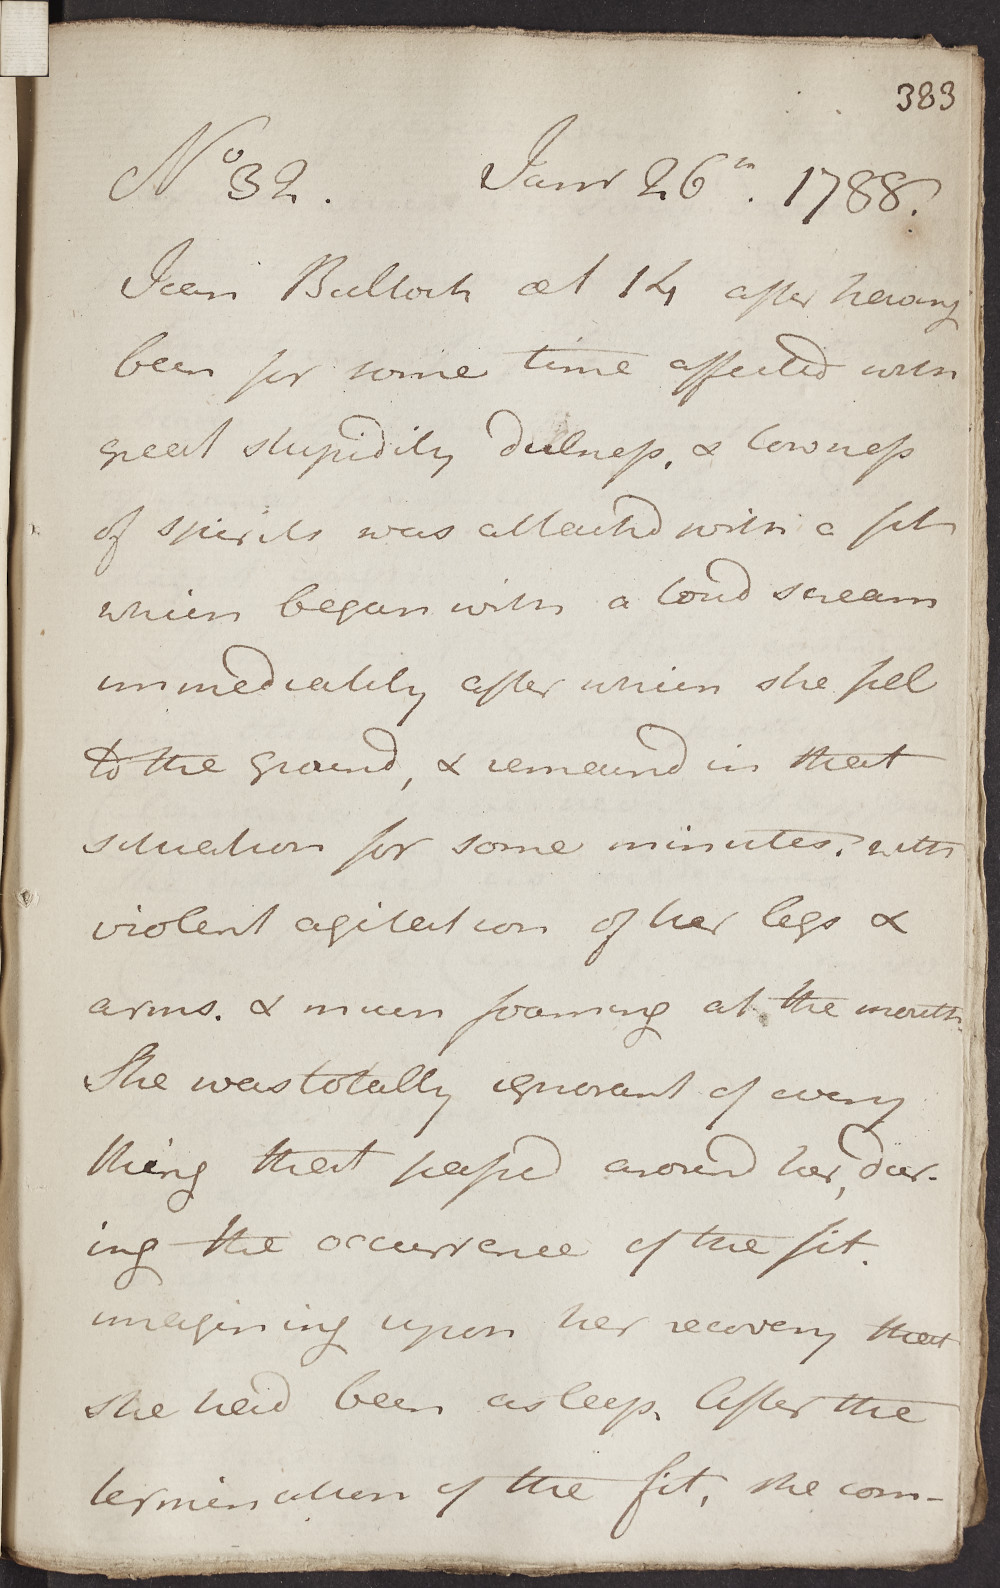 383
No 32. Janr 26th. 1788.
Jean Bulloch æt 14 after having
been for some time affected with
great stupidity dulness, & lowness
of spirits was attackd with a fit
which began with a loud scream
immediatily after which she fell
to the ground, & remaind in that
situation for some minutes. with
violent agitation of her legs &
arms. & much foaming at the mouth.
She was totally ignorant of every
thing that passd around her, dur-
ing the occurrence of the fit.
imagining upon her recovery that
she had been asleep. After the
termination of the fit, she com-